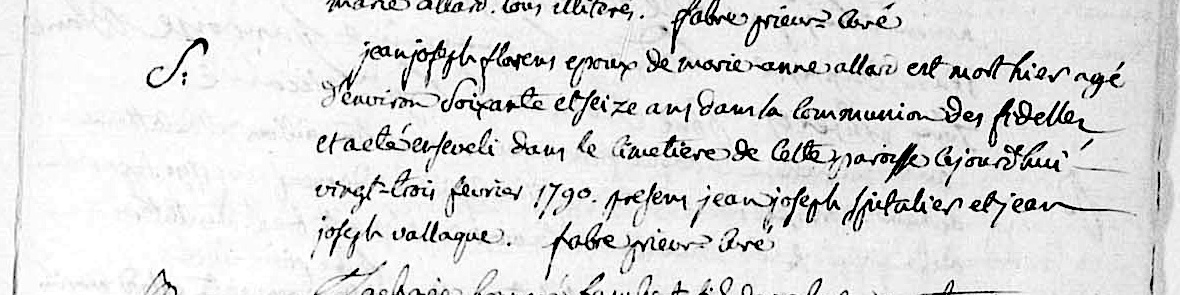 marie allard. tous illiteres. fabre prieur curé
S: jean joseph florens epoux de marie anne allard est mort hier agé
d'environ soixante et seize ans dans la communion des fidelles
et a eté enseveli dans le cimetiere de cette paroisse cejourd'hui
vingt-trois fevrier 1790. presens jean joseph spitalier et jean
joseph vallague. fabre prieur curé